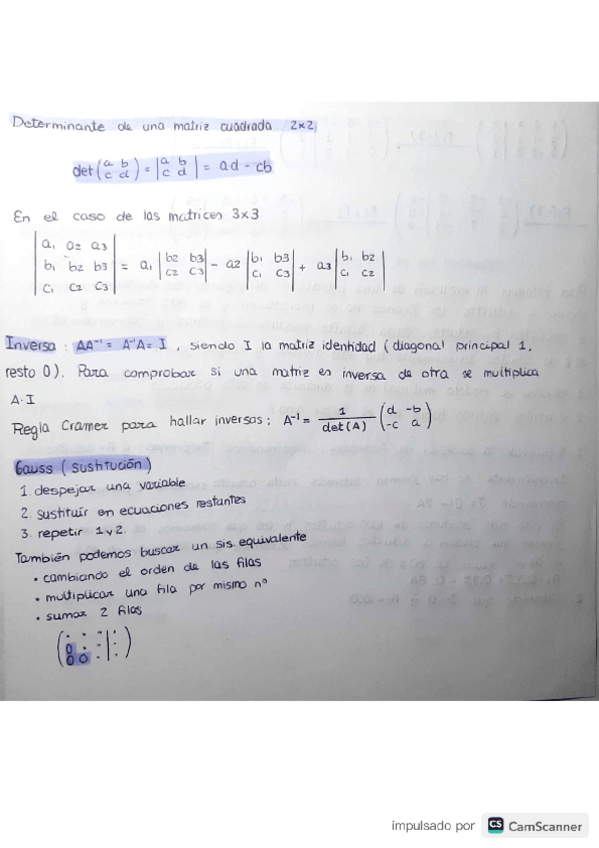 Determinante de una matriz cuadrada 2x2
det (a b c d) = |a b c d| = ad - cb
En el caso de las matrices 3x3
|a1 a2 a3|
|b1 b2 b3| = a1 |b2 b3 c2 c3| - a2 |b1 b3 c1 c3| + a3 |b1 b2 c1 c2|
|c1 c2 c3|
Inversa : AA⁻¹ = A⁻¹A = I , siendo I la matriz identidad (diagonal principal 1,
resto 0). Para comprobar si una matriz es inversa de otra se multiplica
A·I
Regla Cramer para hallar inversas: A⁻¹ = 1/det(A) (d -b -c a)
Gauss (sustitución)
1. despejar una variable
2. sustituír en ecuaciones restantes
3. repetir 1 y 2.
También podemos buscar un sis. equivalente
• cambiando el orden de las filas
• multiplicar una fila por mismo nº
• sumar 2 filas
0
0 0
impulsado por CS CamScanner